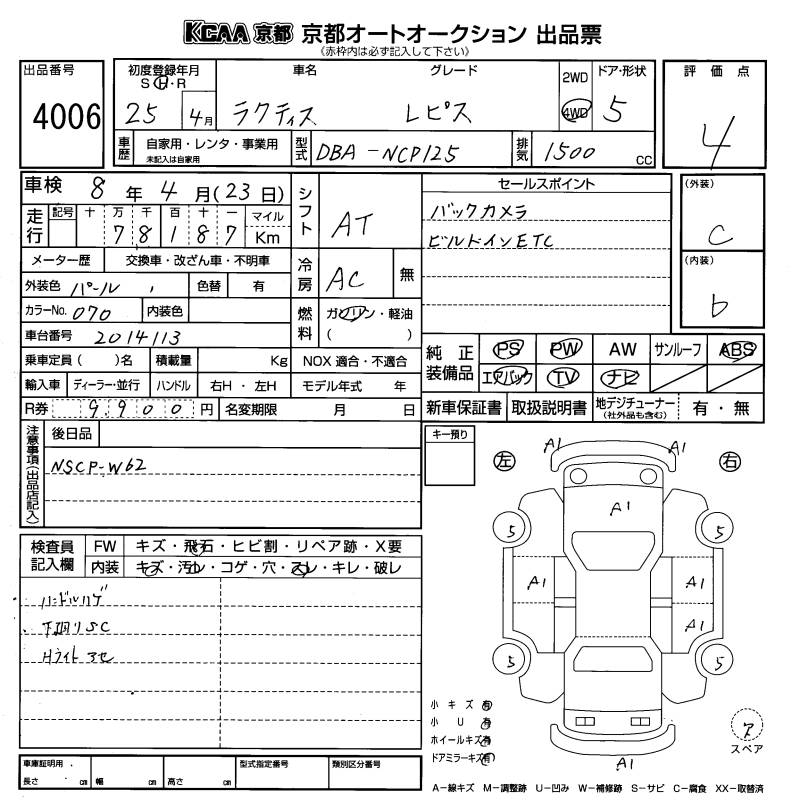 KCAA 京都 京都オートオークション 出品票
(赤枠内は必ず記入して下さい)
出品番号
4006
初度登録年月
S・H・R
25 4月
車名
ラクティス
グレード
レピス
2WD
4WD
ドア・形状
5
評価点
4
車歴
自家用・レンタ・事業用
未記入は自家用
型式
DBA-NCP125
排気
1500 cc
車検 8年 4月(23日)
走行
記号 十 万 千 百 十 一 マイル
7 8 1 8 7 Km
メーター歴 交換車・改ざん車・不明車
外装色 パール 色替 有
カラーNo. 070 内装色
車台番号 2014113
乗車定員( )名 積載量 Kg
輸入車 ディーラー・並行 ハンドル 右H・左H
R券 9,900円 名変期限 月 日
シフト
AT
冷房
AC 無
燃料
ガソリン・軽油
( )
NOX 適合・不適合
モデル年式 年
セールスポイント
バックカメラ
ビルドインETC
(外装)
C
(内装)
b
純正装備品
PS PW AW サンルーフ ABS
エアバック TV ナビ
新車保証書 取扱説明書 地デジチューナー(社外品も含む) 有・無
注意事項(出品店記入)
後日品
NSCP-W62
キー預り
検査員記入欄
FW キズ・飛石・ヒビ割・リペア跡・X要
内装 キズ・汚れ・コゲ・穴・スレ・キレ・破レ
ハンドルハゲ
下回りSC
Hライトアセ
左 右
A1 A1
A1
5 5
A1 A1
A1
5 5
A1
小キズ 有
小U 有
ホイールキズ 有
ドアミラーキズ 有
ア
スペア
車庫証明用
長さ cm 幅 cm 高さ cm
型式指定番号 類別区分番号
A-線キズ M-調整跡 U-凹み W-補修跡 S-サビ C-腐食 XX-取替済